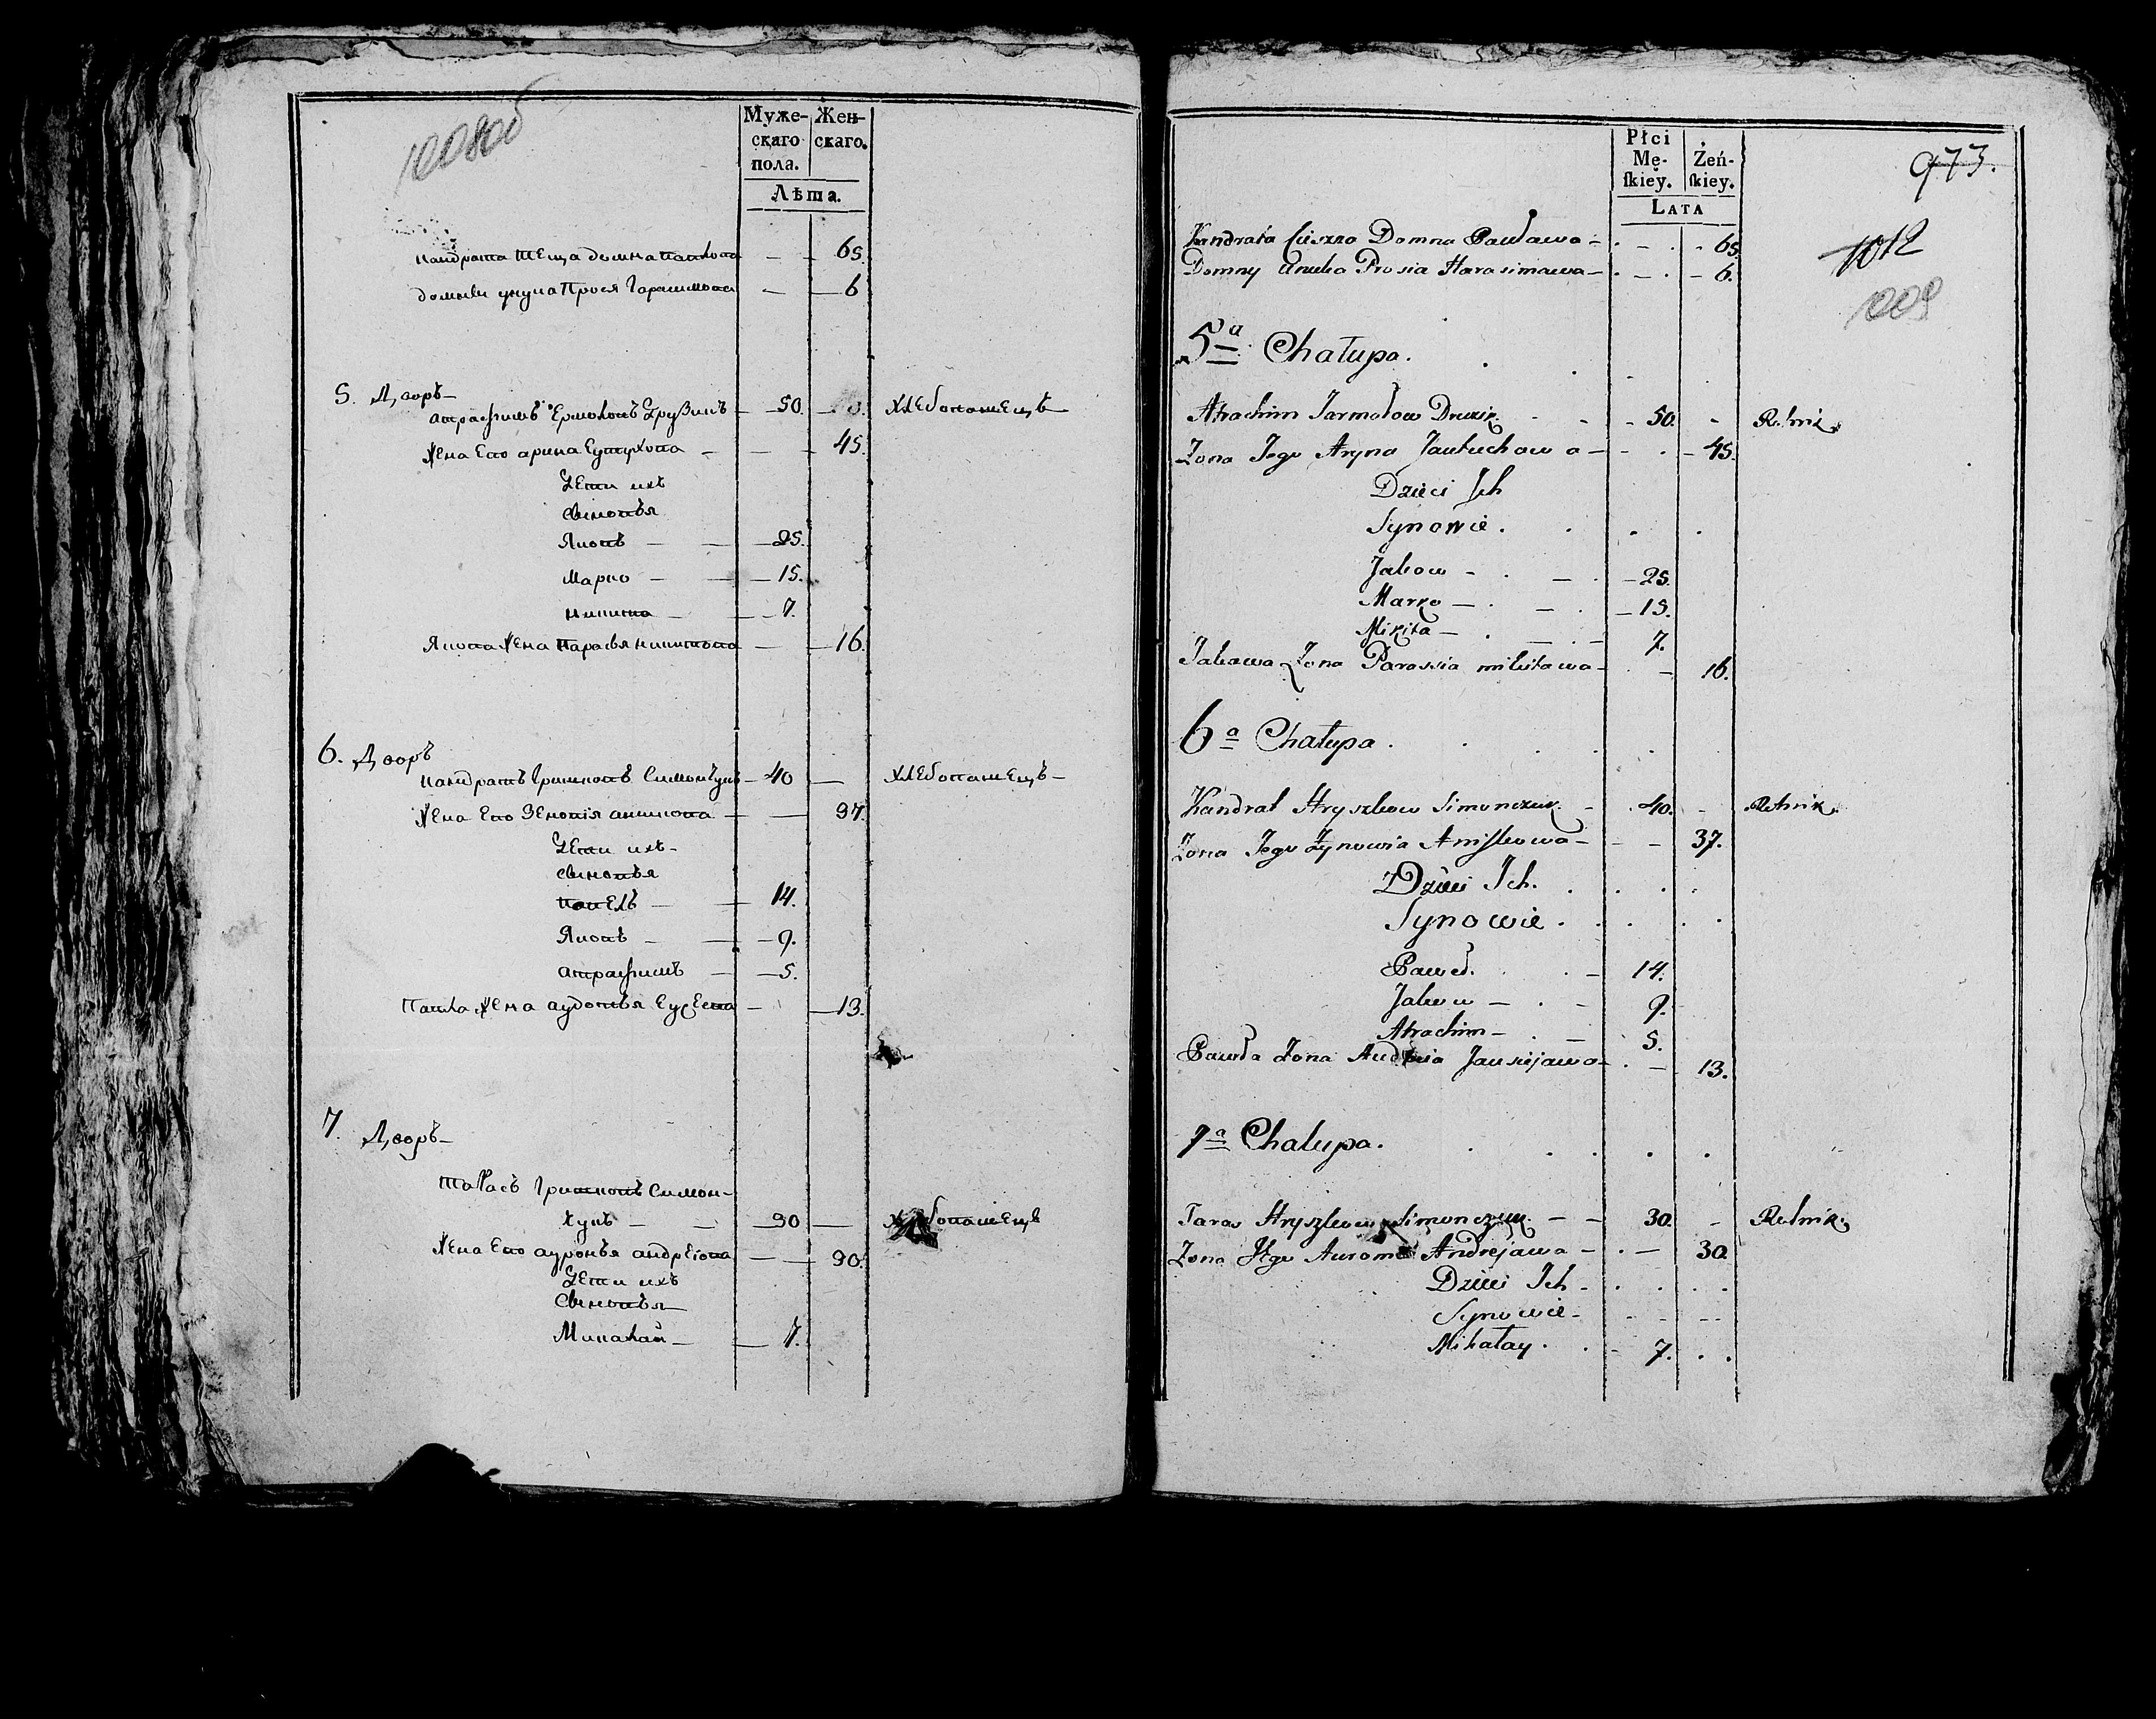 1008об
Муже-
скаго
пола.
Жен-
скаго.
Лѣта.
Кандрата теща домна павлова — — 65.
домны унука Прося Гарасимова — — 6
5. Дворъ
Атрахимъ Ермоловъ Друзикъ — 50. — Хлебопашецъ
Жена Его арина Еутухова — — 45.
Дети ихъ
Сыновья
Яковъ — — 25.
Марко — — 15.
Никита — — 7.
Якова Жена Парасья никитова — — 16.
6. Дворъ
Кандратъ Гришковъ Симончукъ — 40 — Хлебопашецъ
Жена Его Зеновія анишкова — — 37.
Дети ихъ
Сыновья
Павелъ — — 14.
Яковъ — — 9.
Атрахимъ — — 5.
Павла Жена аудотья Еусеева — — 13.
7. Дворъ
Тарасъ Гришковъ Симон-
чукъ — — 30 — Хлебопашецъ
Жена Его ауромья андреiова — — 30.
Дети ихъ
Сыновья
Микалай — — 7.
Płci
Mę-
ſkiey.
Żeń-
ſkiey.
LATA
973.
1012
1009
Kandrata Cieszcza Domna Pawława — 65.
Domny Unuka Prosia Harasimawa — 6.
5a Chałupa.
Atrachim Jarmołow Druzik — 50. Rolnik
Żona Jego Aryna Jautuchowa — 45.
Dzieci Jch
Synowie.
Jakow — 25.
Marko — 15.
Mikita — 7.
Jakawa Żona Parassia mikitawa — 16.
6a Chałupa.
Kandrat Hryszkow Simonczuk — 40. Rolnik.
Żona Jego Zynowia Aniſkowa — 37.
Dzieci Jch.
Synowie.
Paweł. — 14.
Jakow — 9.
Atrachim — 5.
Pawła Żona Audocia Jausiejawa — 13.
7a Chałupa.
Taras Hryszkow Simonczuk — 30. Rolnik.
Żona Jego Andrejawa — 30.
Dzieci Jch
Synowie
Mikałay. 7.